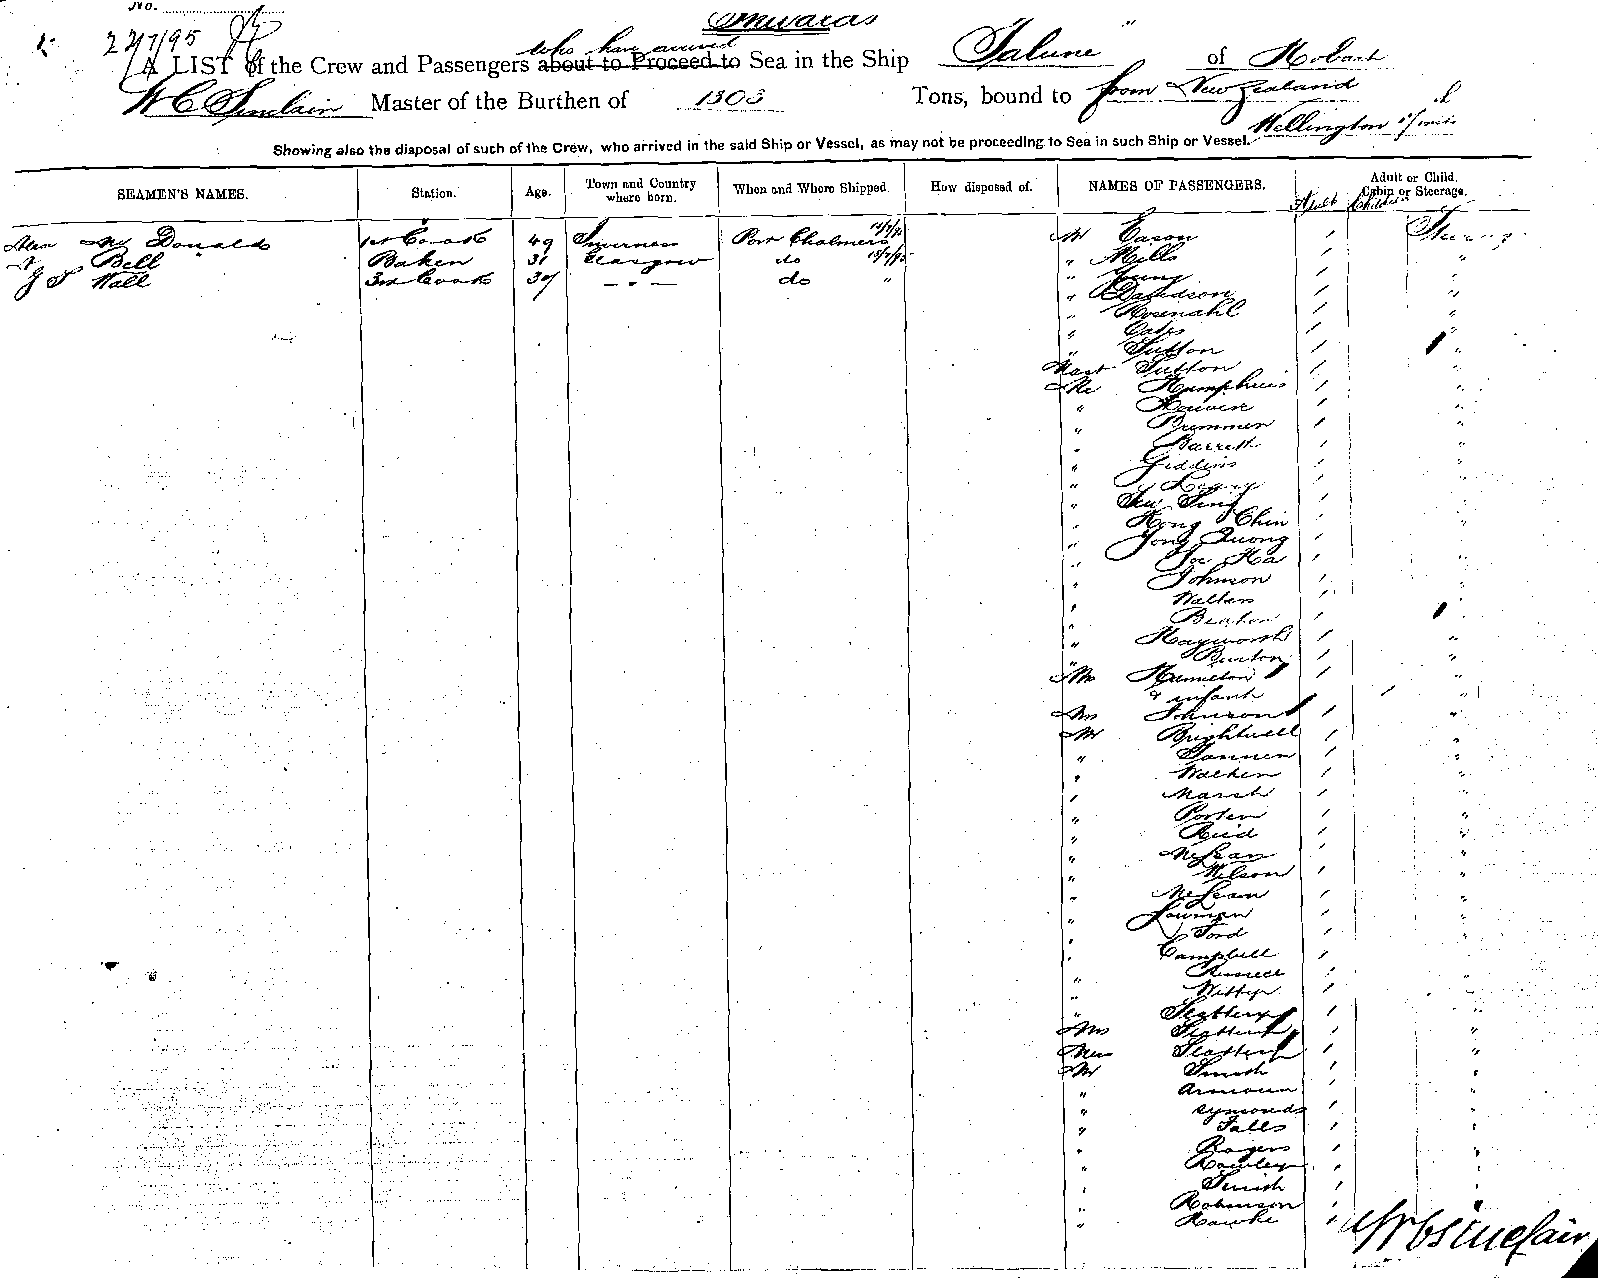 No.
Inwards
22/7/95
who have arrived
A LIST of the Crew and Passengers about to Proceed to Sea in the Ship Talune of Hobart
W C Sinclair Master of the Burthen of 1303 Tons, bound to from New Zealand
Wellington
Showing also the disposal of such of the Crew, who arrived in the said Ship or Vessel, as may not be proceeding to Sea in such Ship or Vessel.
SEAMEN'S NAMES. Station. Age. Town and Country where born. When and Where Shipped. How disposed of. NAMES OF PASSENGERS. Adult or Child. Cabin or Steerage.
Adult Children
Alex McDonald 1st Cook 49 Inverness Port Chalmers Mr Eason
Bell Baker 31 Glasgow do " Mills
J S Wall 3rd Cook 30 do " " Young
" Davidson
" Rosenahl
" Oates
" Sutton
Mast Sutton
Mr Humphries
"
" Bremmen
" Barrett
" Giddins
"
" Sing
" Hong Chin
" Quong
" Ha
" Johnson
" Walters
" Beaton
" Hayworth
" Burton
Mrs Hamilton
& infant
Mrs Johnson
Mr Brightwell
" Tanner
" Walker
" Marsh
" Porter
" Reid
" McLean
" Wilson
" McLean
" Lowman
" Ford
" Campbell
"
"
" Slattery
Mrs Slattery
Miss Slattery
Mr Smith
" Armour
" Symonds
" Falls
" Rogers
" Rowley
" Smith
" Robinson
" Hawke
W C Sinclair